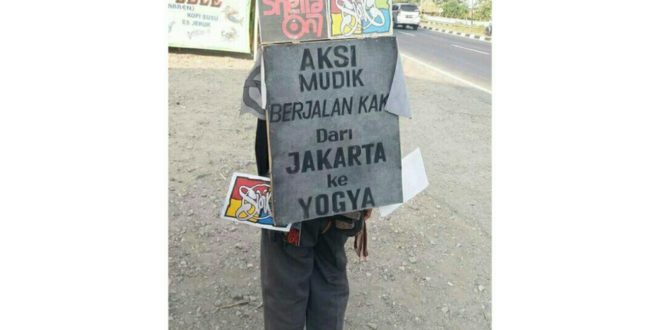 KOPI SUSU
ES JERUK
Sheila
On
AKSI
MUDIK
BERJALAN KAK
Dari
JAKARTA
ke
YOGYA